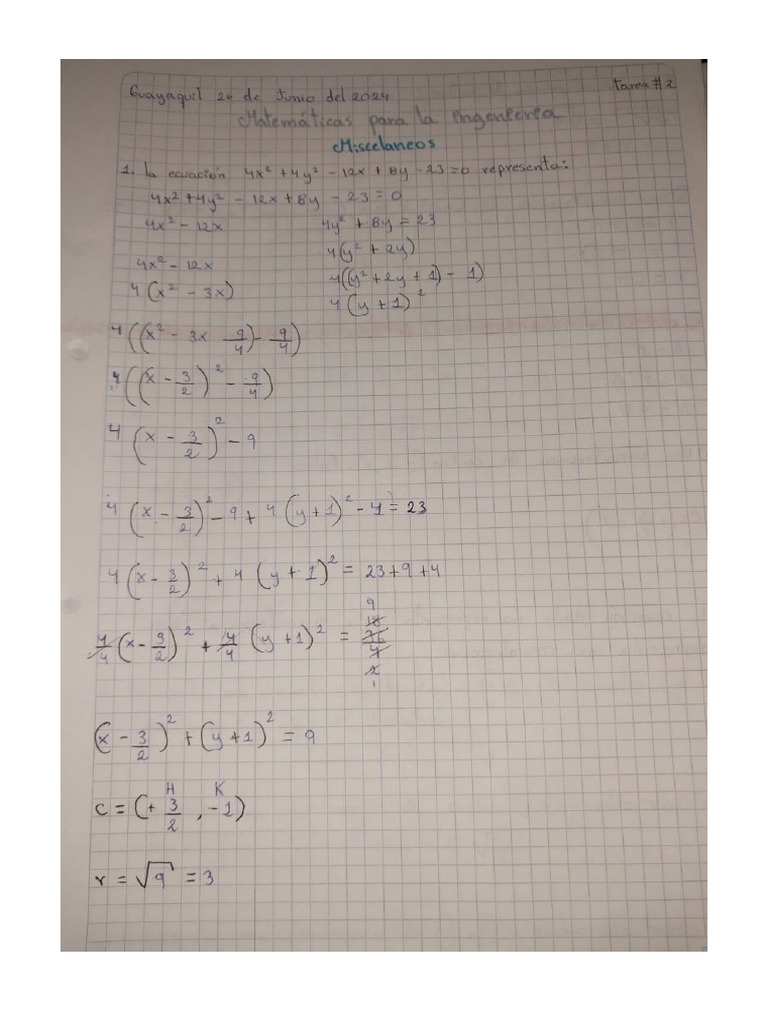 Guayaquil 26 de Junio del 2024
Tarea #2
Matemáticas para la Ingenierea
Miscelaneos
1. la ecuación 4x² + 4y² - 12x + 8y - 23 = 0 representa:
4x² + 4y² - 12x + 8y - 23 = 0
4x² - 12x 4y² + 8y = 23
4(y² + 2y)
4x² - 12x 4((y² + 2y + 1) - 1)
4(x² - 3x) 4(y + 1)²
4((x² - 3x 9/4) - 9/4)
4((x - 3/2)² - 9/4)
4(x - 3/2)² - 9
4(x - 3/2)² - 9 + 4(y + 1)² - 4 = 23
4(x - 3/2)² + 4(y + 1)² = 23 + 9 + 4
4/4(x - 3/2)² + 4/4(y + 1)² = 9 18 36/4 2 1
(x - 3/2)² + (y + 1)² = 9
H K
C = (+ 3/2, -1)
r = √9 = 3